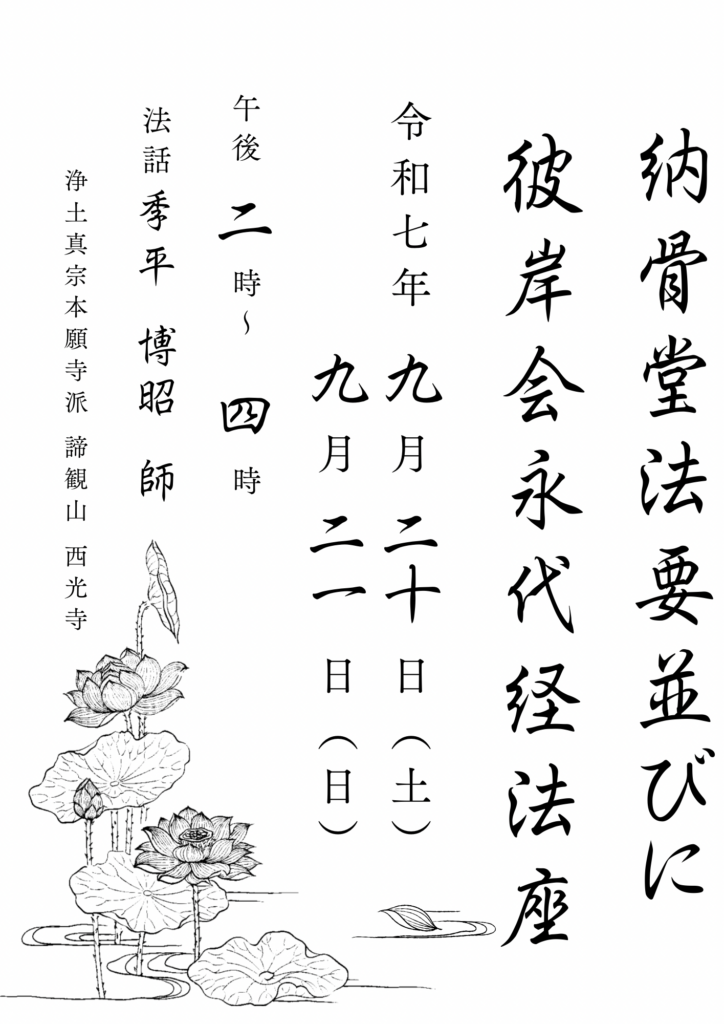 納骨堂法要並びに
彼岸会永代経法座
令和七年 九月 二十日（土）
九月 二一日（日）
午後 二時～ 四時
法話 季平 博昭 師
浄土真宗本願寺派 諦観山 西光寺